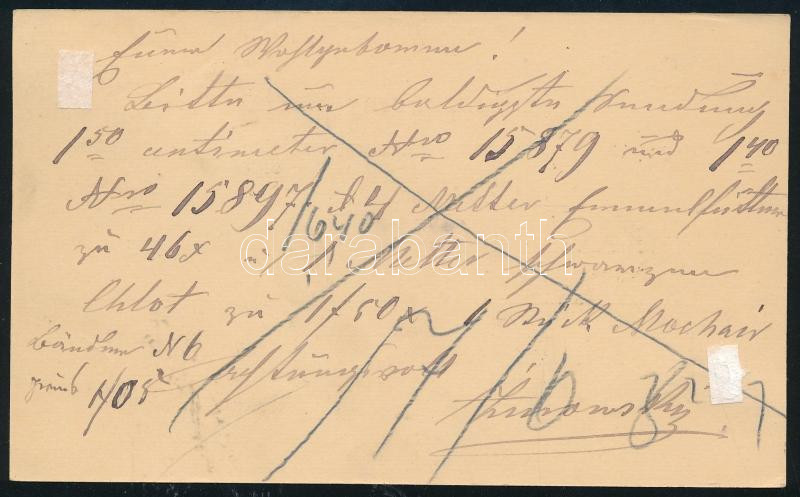 Euer Wohlgeboren!
Bitte um baldigste Sendung
1 50 centimeter Nro 15879 und 1 40
Nro 15897, 4 Metter Ermelfutter
zu 46x 1 Metter schwarzen
Chlot zu 1f 50x 1 Stück Mochair
Bänder N 6
1/05
Achtungsvoll
/640
darabanth